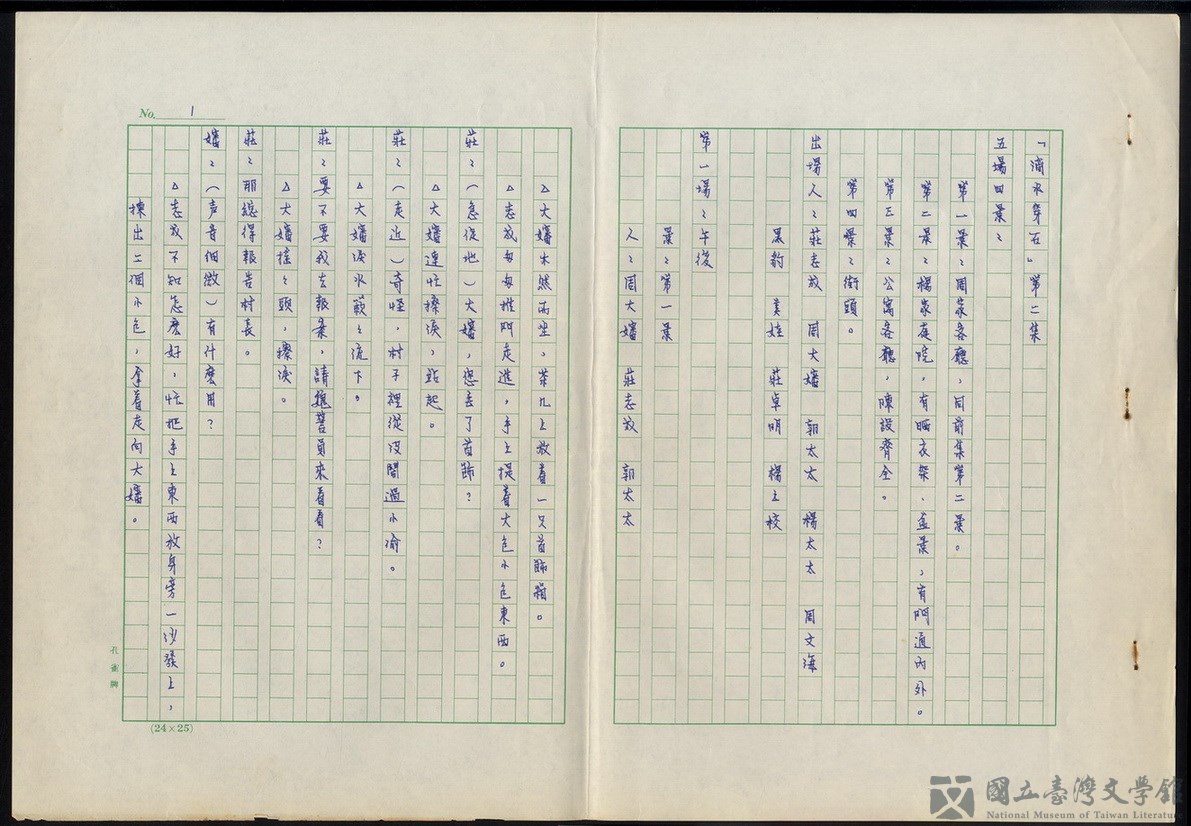 No. 1
「滴水穿石」第二集
五場四景：
第一景：周家客廳，同前集第二景。
第二景：楊家庭院，有晒衣架、盆景，有門通內外。
第三景：公寓客廳，陳設齊全。
第四景：街頭。
出場人：莊志成 周大嬸 郭太太 楊太太 周文海
黑豹 美娃 莊卓明 楊主校
第一場：午後
景：第一景
人：周大嬸 莊志成 郭太太
△大嬸木然而坐，茶几上放着一只首飾箱。
△志成匆匆推門走進，手上提着大包小包東西。
莊：（急促地）大嬸，您丟了首飾？
△大嬸連忙擦淚，站起。
莊：（走近）奇怪，村子裡從沒鬧過小偷。
△大嬸淚水簌簌流下。
莊：要不要我去報案，請魏警員來看看？
△大嬸搖搖頭，擦淚。
莊：那總得報告村長。
嬸：（声音細微）有什麽用？
△志成不知怎麽好，忙把手上東西放身旁一沙發上，
揀出二個小包，拿着走向大嬸。
孔雀牌
(24×25)
國立臺灣文學館
National Museum of Taiwan Literature